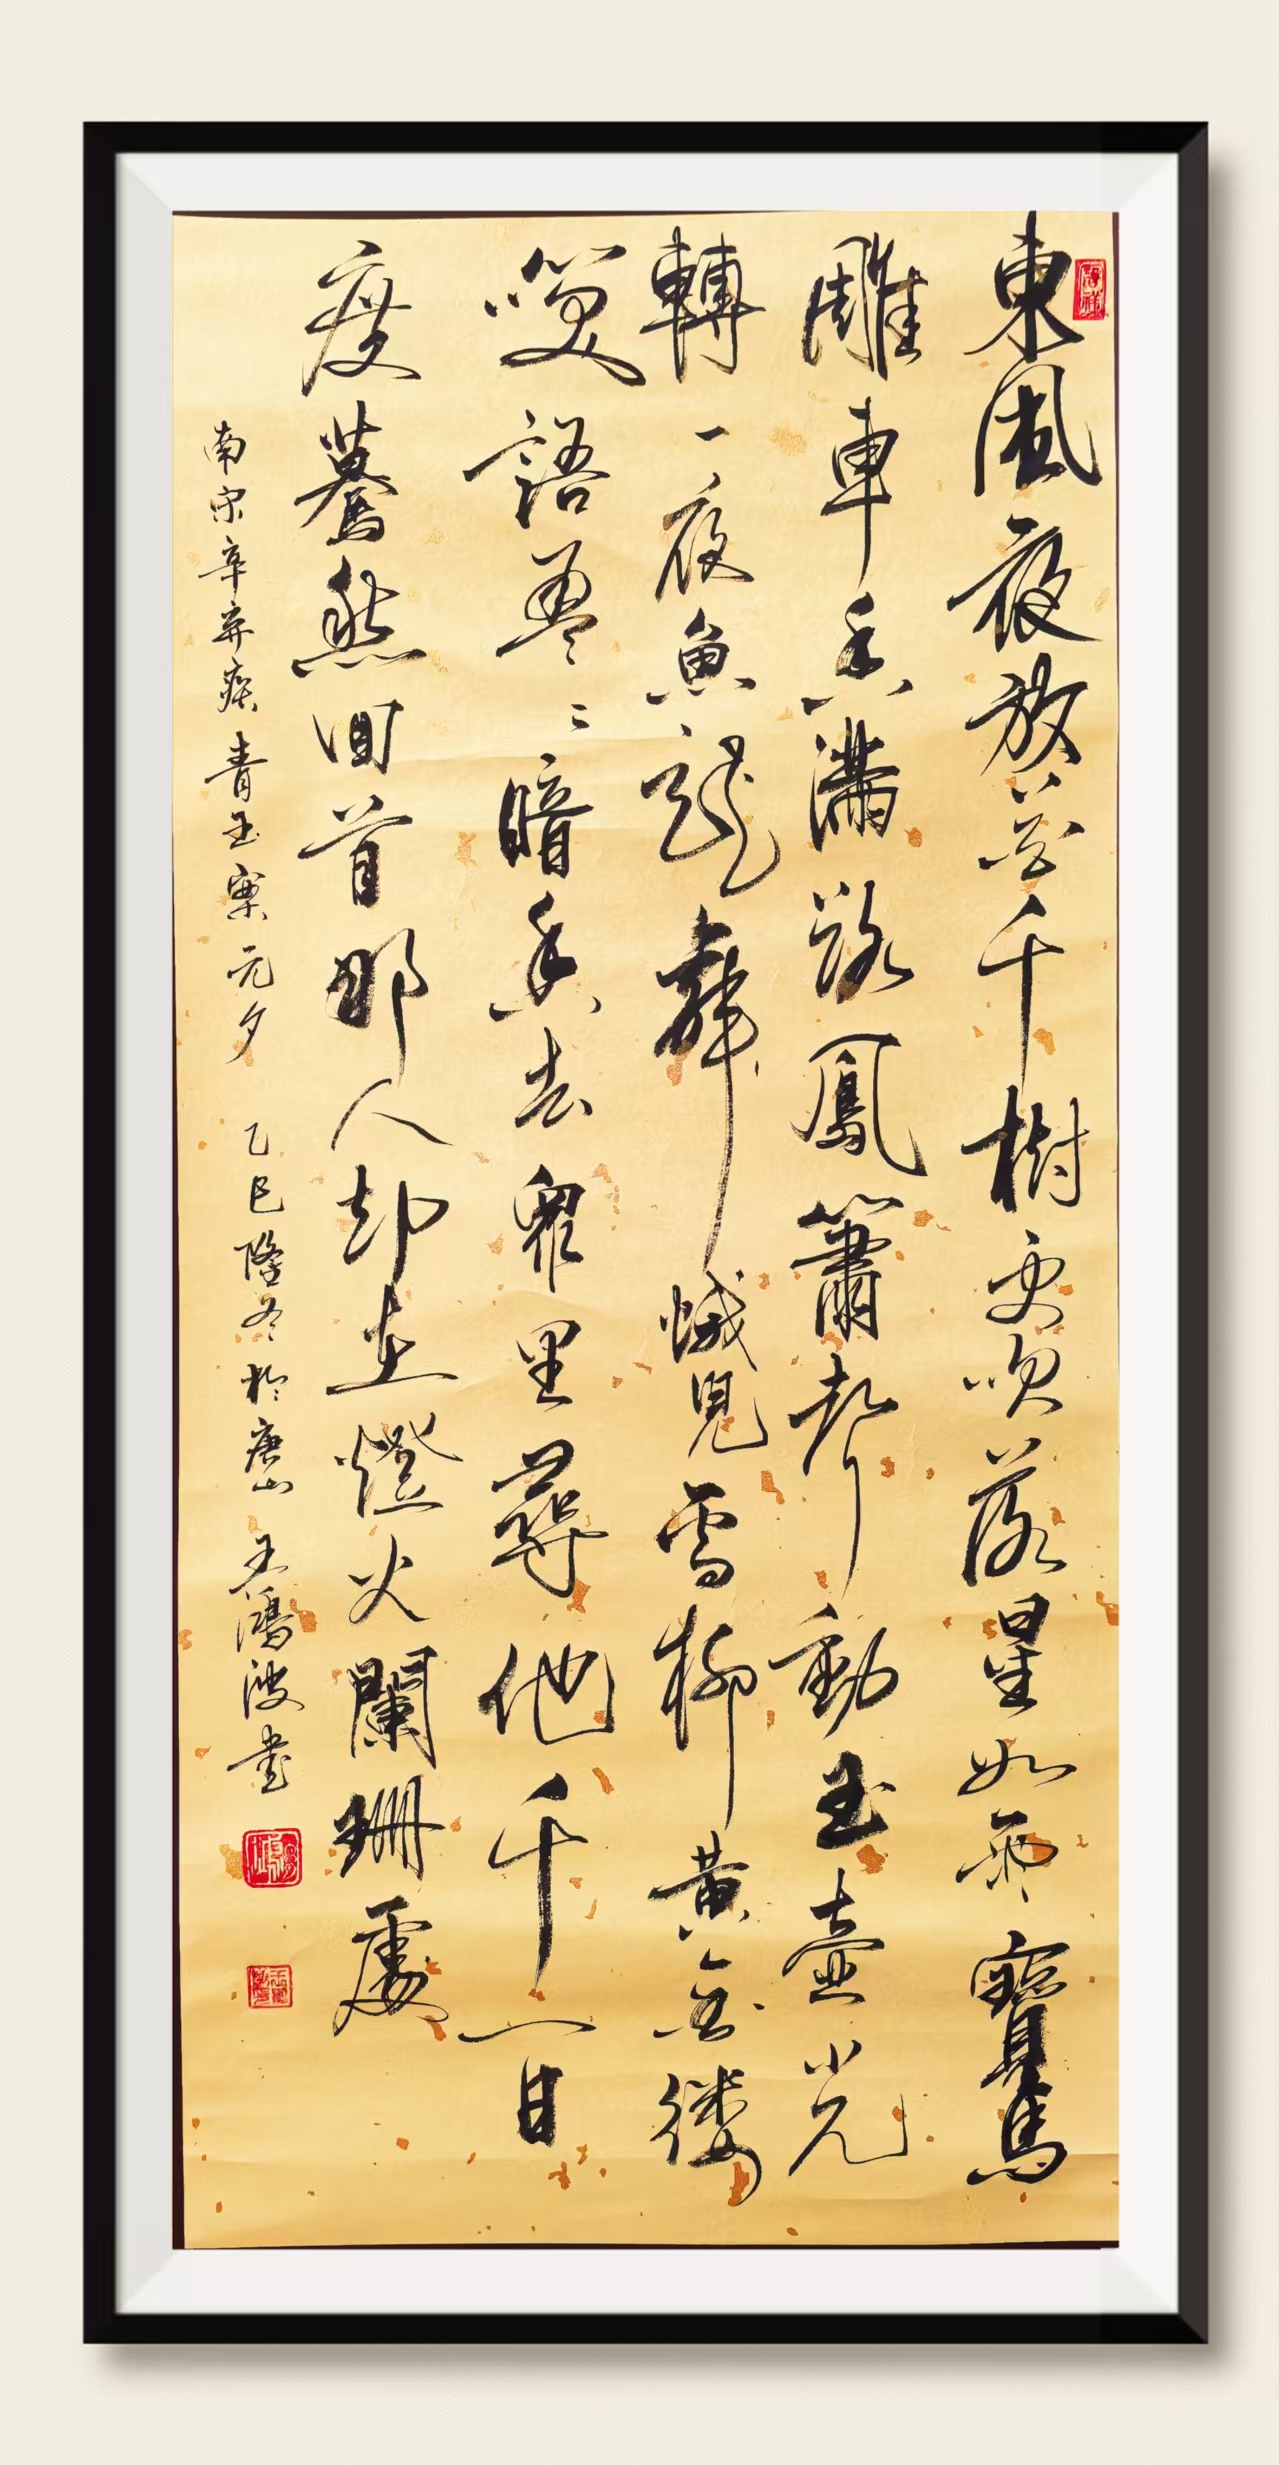 東風夜放花千樹更吹落星如雨寶馬
雕車香滿路鳳簫聲動玉壺光
轉一夜魚龍舞蛾兒雪柳黃金縷
笑語盈〻暗香去眾里尋他千百
度驀然回首那人却在燈火闌珊處
南宋辛弃疾青玉案元夕 乙巳隆冬於唐山 王鴻波書